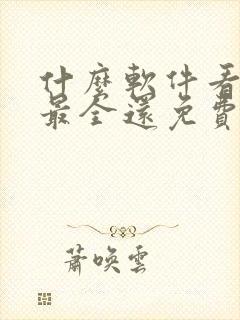 什麼軟件看
最全還免費
蕭喚雲